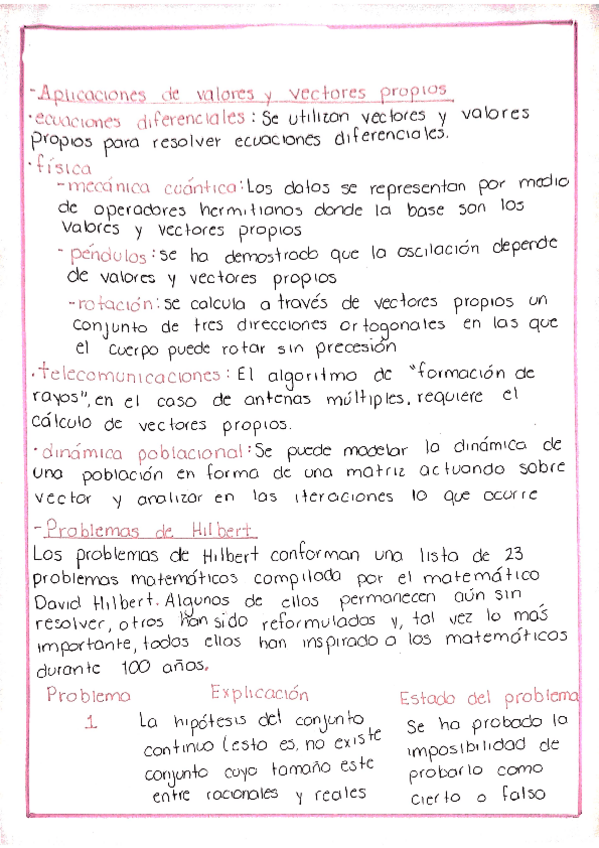 -Aplicaciones de valores y vectores propios
·ecuaciones diferenciales: Se utilizan vectores y valores
propios para resolver ecuaciones diferenciales.
·física
-mecánica cuántica: Los datos se representan por medio
de operadores hermitianos donde la base son los
valores y vectores propios
-péndulos: se ha demostrado que la oscilación depende
de valores y vectores propios
-rotación: se calcula a través de vectores propios un
conjunto de tres direcciones ortogonales en las que
el cuerpo puede rotar sin precesión
·telecomunicaciones: El algoritmo de "formación de
rayos", en el caso de antenas múltiples, requiere el
cálculo de vectores propios.
·dinámica poblacional: Se puede modelar la dinámica de
una población en forma de una matriz actuando sobre
vector y analizar en las iteraciones lo que ocurre
-Problemas de Hilbert
Los problemas de Hilbert conforman una lista de 23
problemas matemáticos compilada por el matemático
David Hilbert. Algunos de ellos permanecen aún sin
resolver, otros han sido reformulados y, tal vez lo más
importante, todos ellos han inspirado a los matemáticos
durante 100 años.
Problema Explicación Estado del problema
1 La hipótesis del conjunto Se ha probado la
continuo (esto es, no existe imposibilidad de
conjunto cuyo tamaño este probarlo como
entre racionales y reales cierto o falso